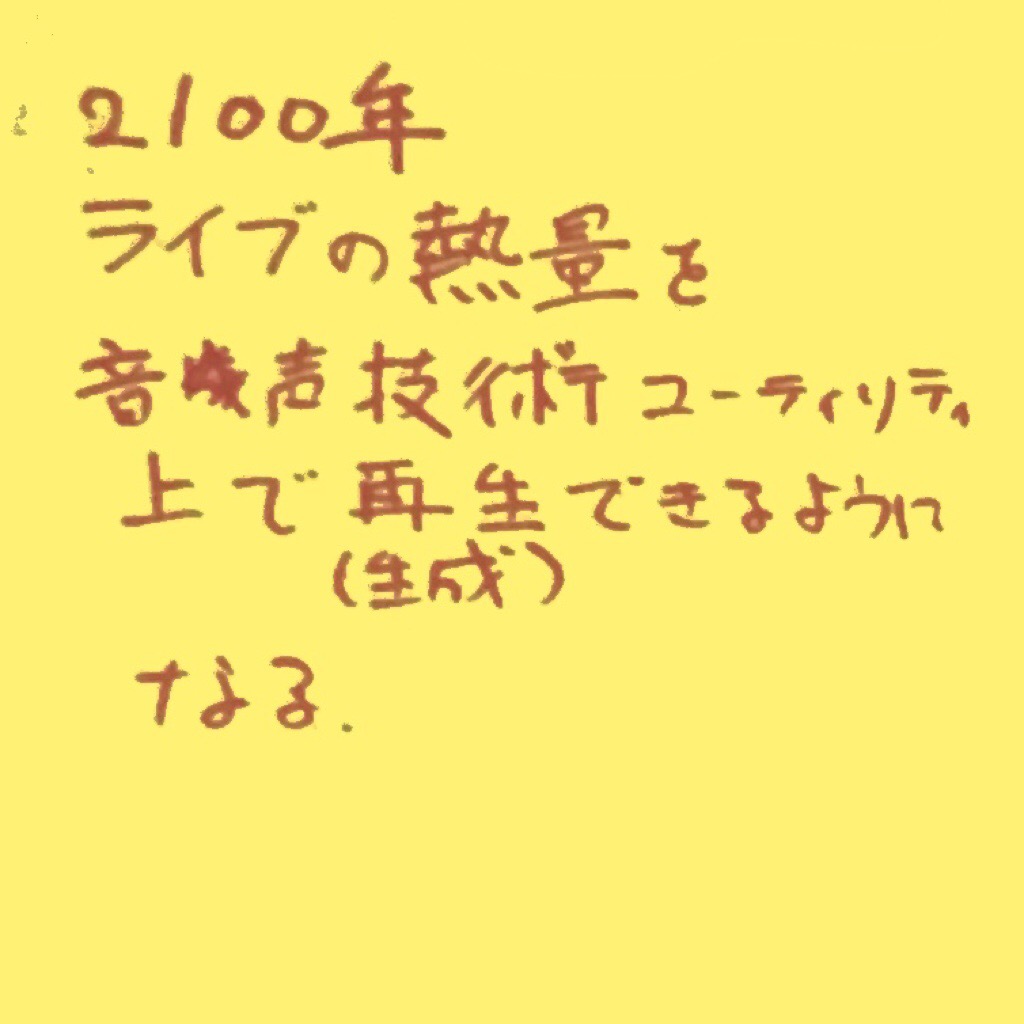 2100年
ライブの熱量を
音声技術ユーティリティ
上で再生できるように
(生成)
なる.